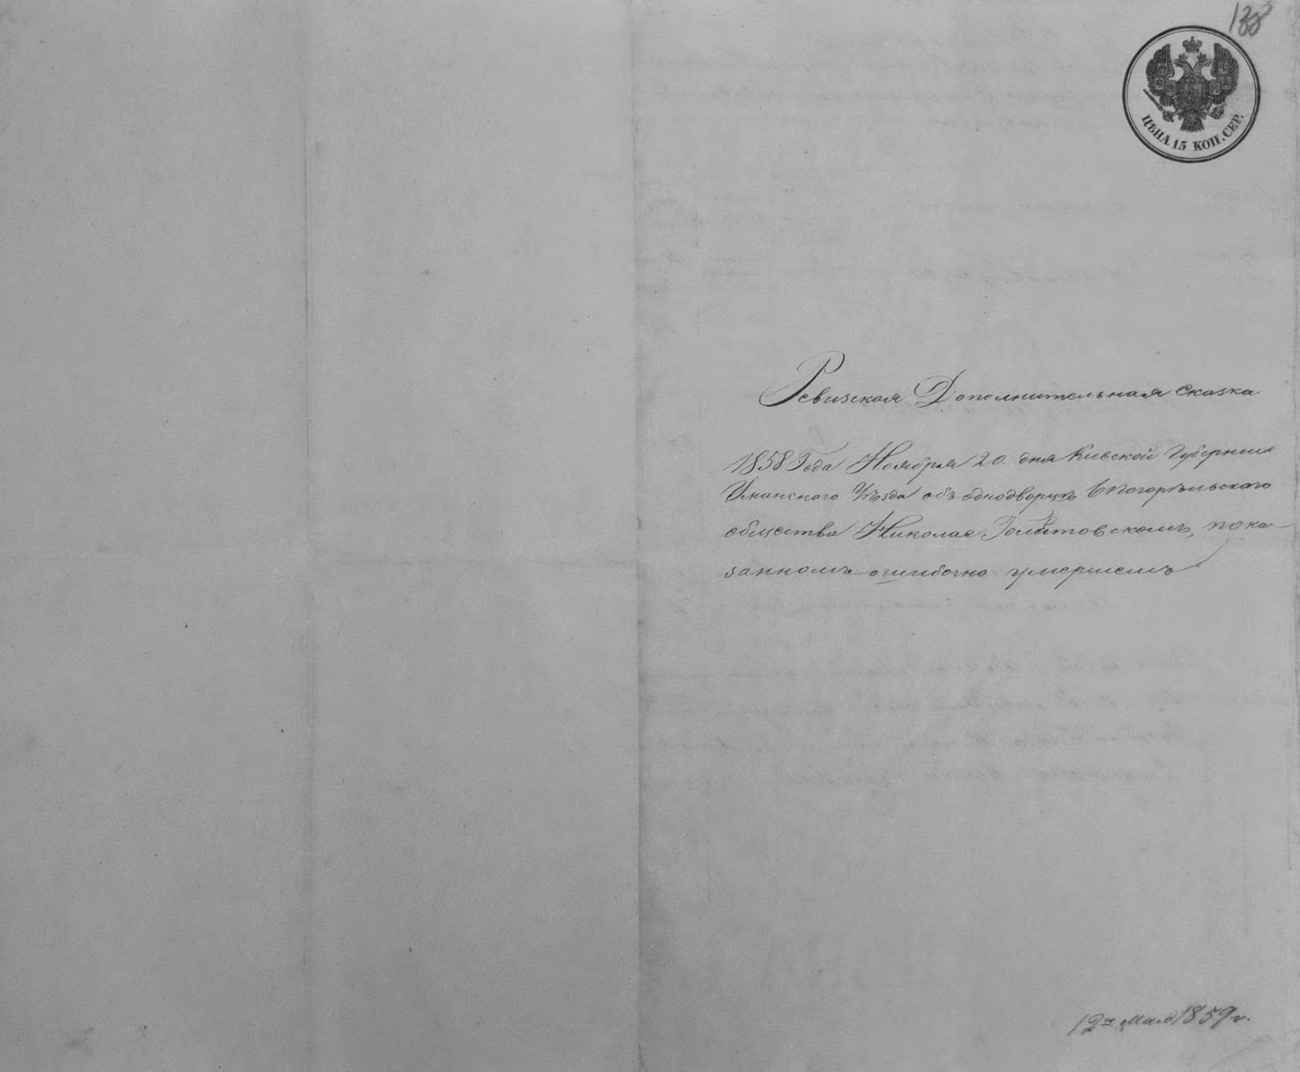 138
ЦѢНА 15 КОП. СЕР.
Ревизская Дополнительная сказка
1858 Года Ноября 20 дня Киевской Губернии
Уманского Уѣзда объ однодворцѣ
общества Николае пока-
занномъ ошибочно умершемъ
12го Мая 1859 г.